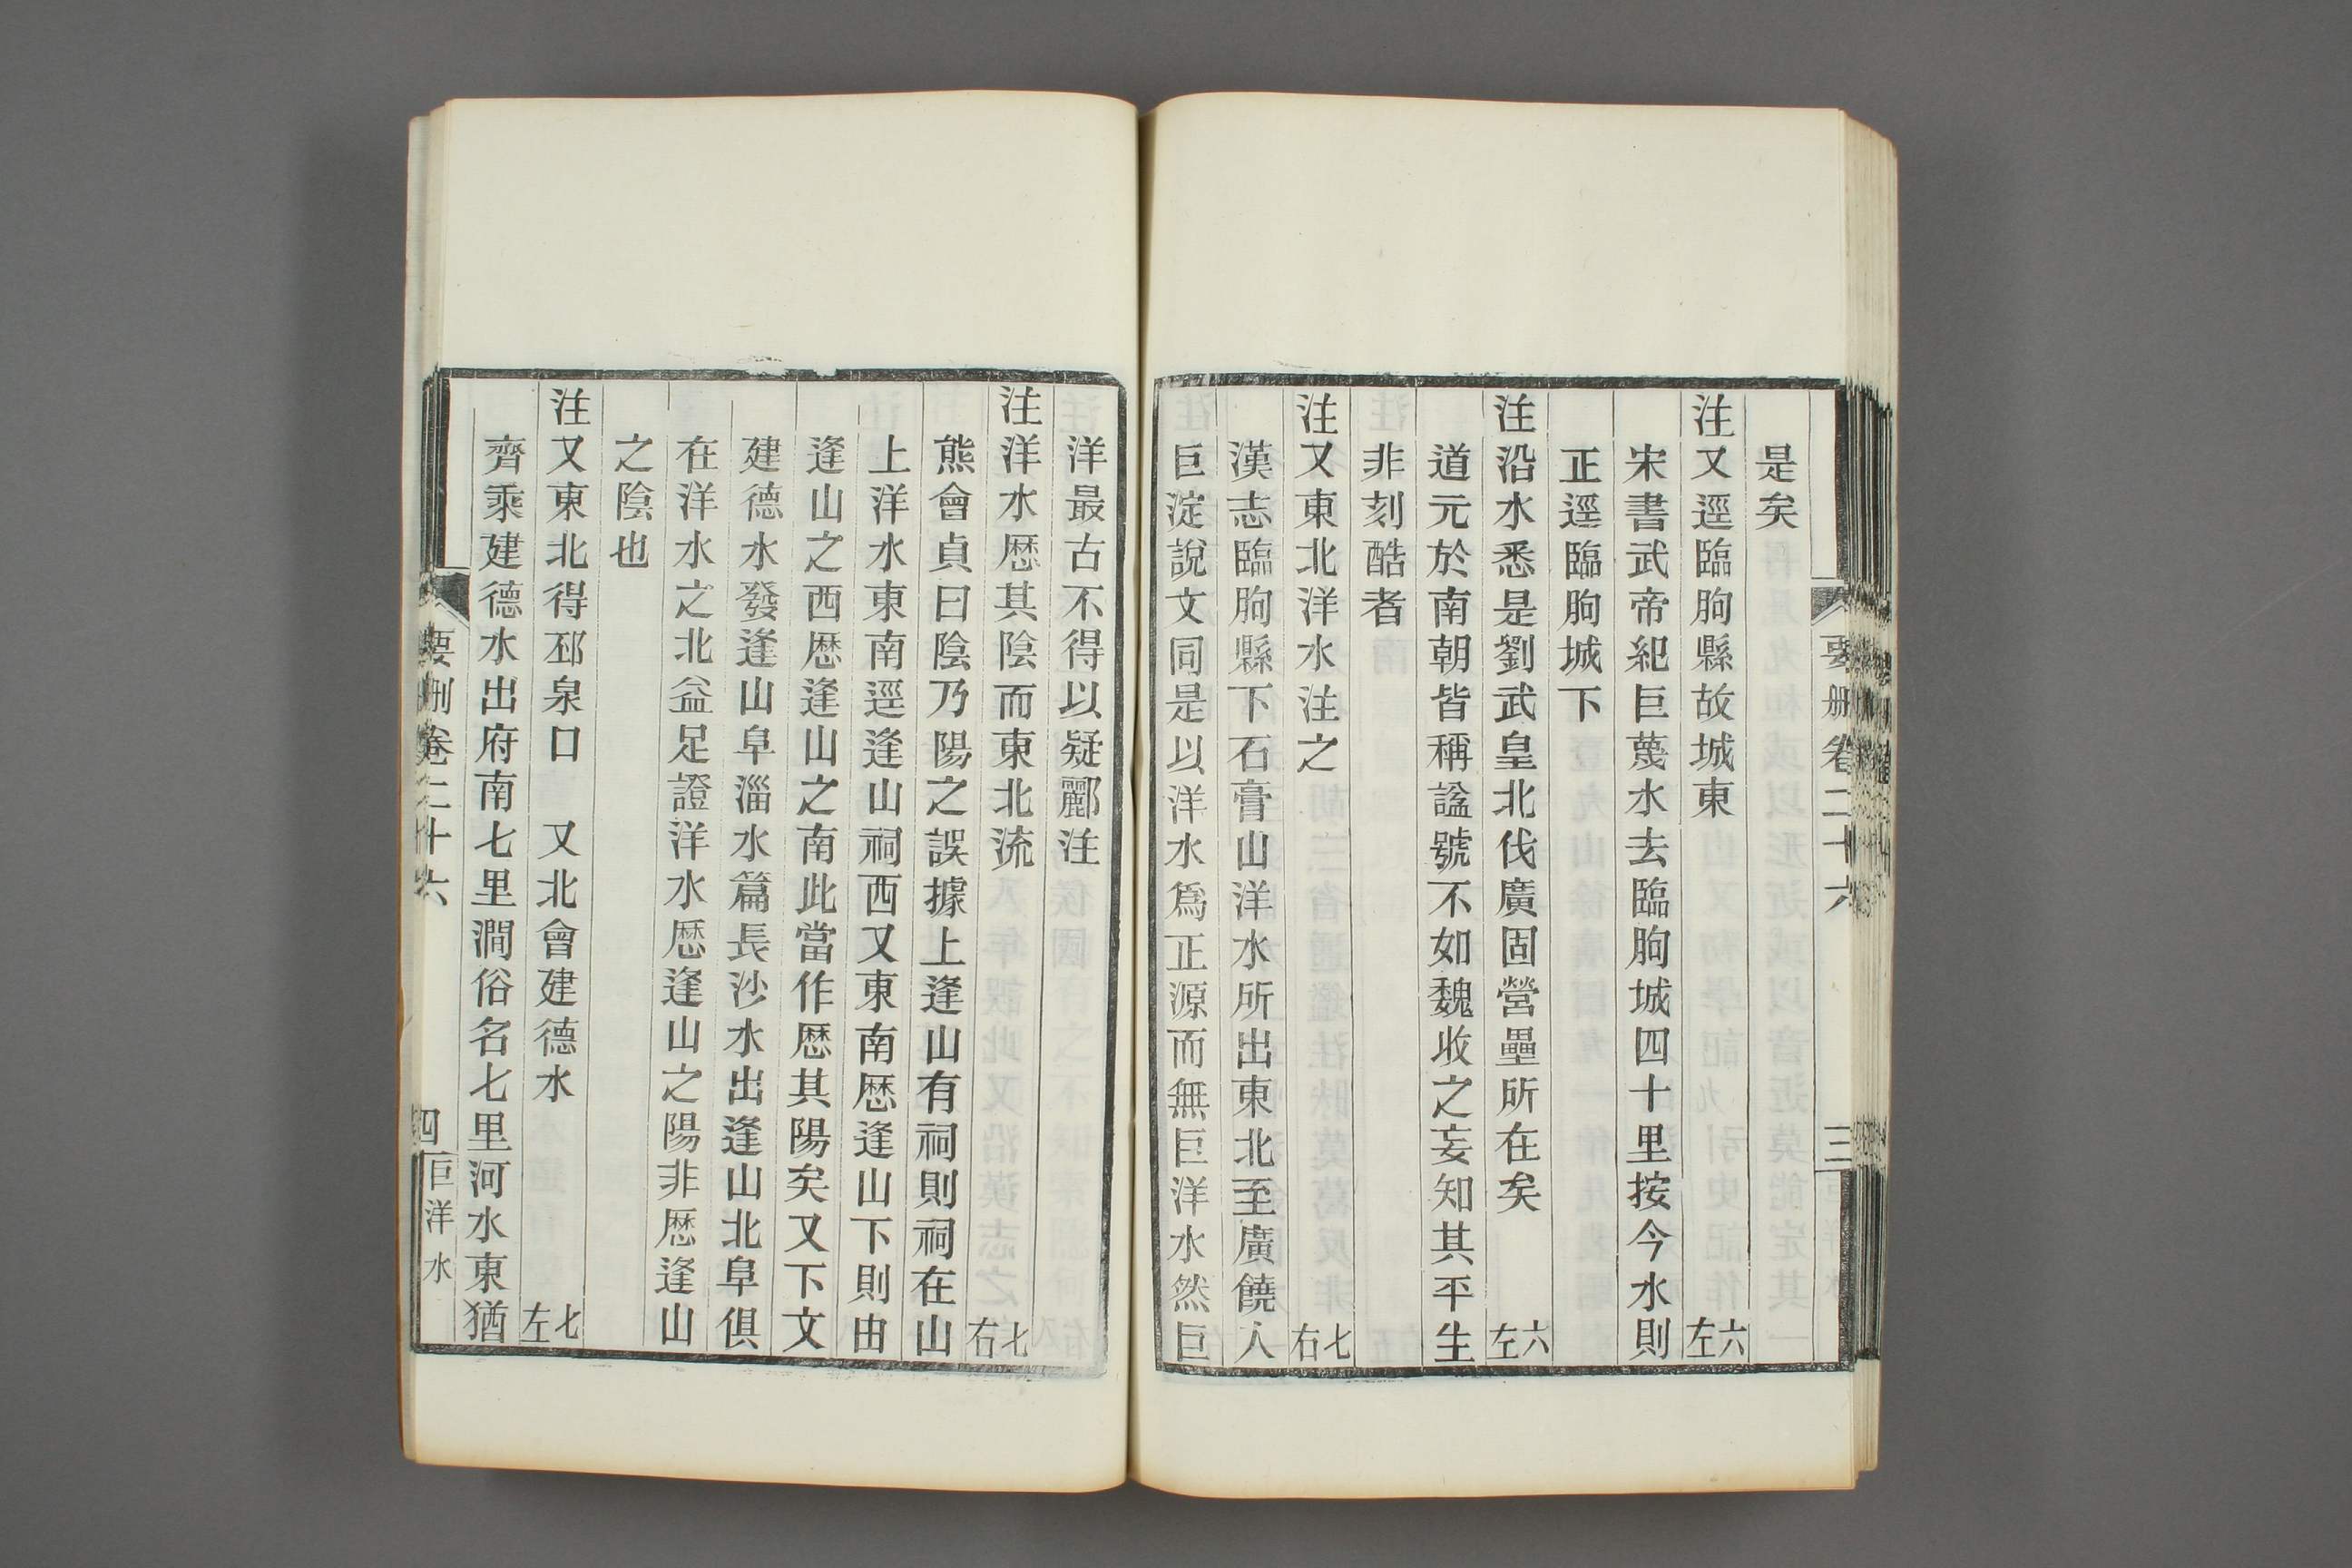 要刪卷二十六
三
是矣
注又逕臨朐縣故城東 六左
宋書武帝紀巨蔑水去臨朐城四十里按今水則
正逕臨朐城下
注沿水悉是劉武皇北伐廣固營壘所在矣 六左
道元於南朝皆稱謚號不如魏收之妄知其平生
非刻酷者
注又東北洋水注之 七右
漢志臨朐縣下石膏山洋水所出東北至廣饒入
巨淀說文同是以洋水爲正源而無巨洋水然巨
洋最古不得以疑酈注
注洋水歷其陰而東北流 七右
熊會貞曰陰乃陽之誤據上逢山有祠則祠在山
上洋水東南逕逢山祠西又東南歷逢山下則由
逢山之西歷逢山之南此當作歷其陽矣又下文
建德水發逢山阜淄水篇長沙水出逢山北阜俱
在洋水之北益足證洋水歷逢山之陽非歷逢山
之陰也
注又東北得邳泉口 又北會建德水 七左
齊乘建德水出府南七里澗俗名七里河水東猶
要刪卷二十六
四
巨洋水